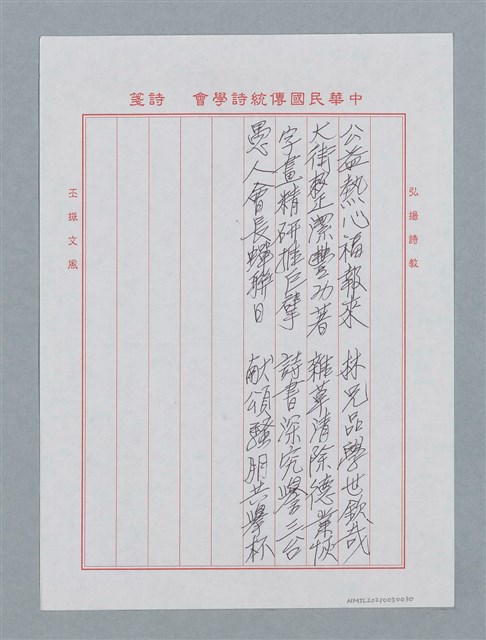 中華民國傳統詩學會　詩箋
弘揚詩教
公益熱心福報來　林兄品學世欽哉
大街整潔豐功著　雜草清除德業恢
字畫精研推巨擘　詩書深究譽三台
愚人會長蟬聯日　献頌騷朋共擧杯
丕振文風
NMTL20210030030